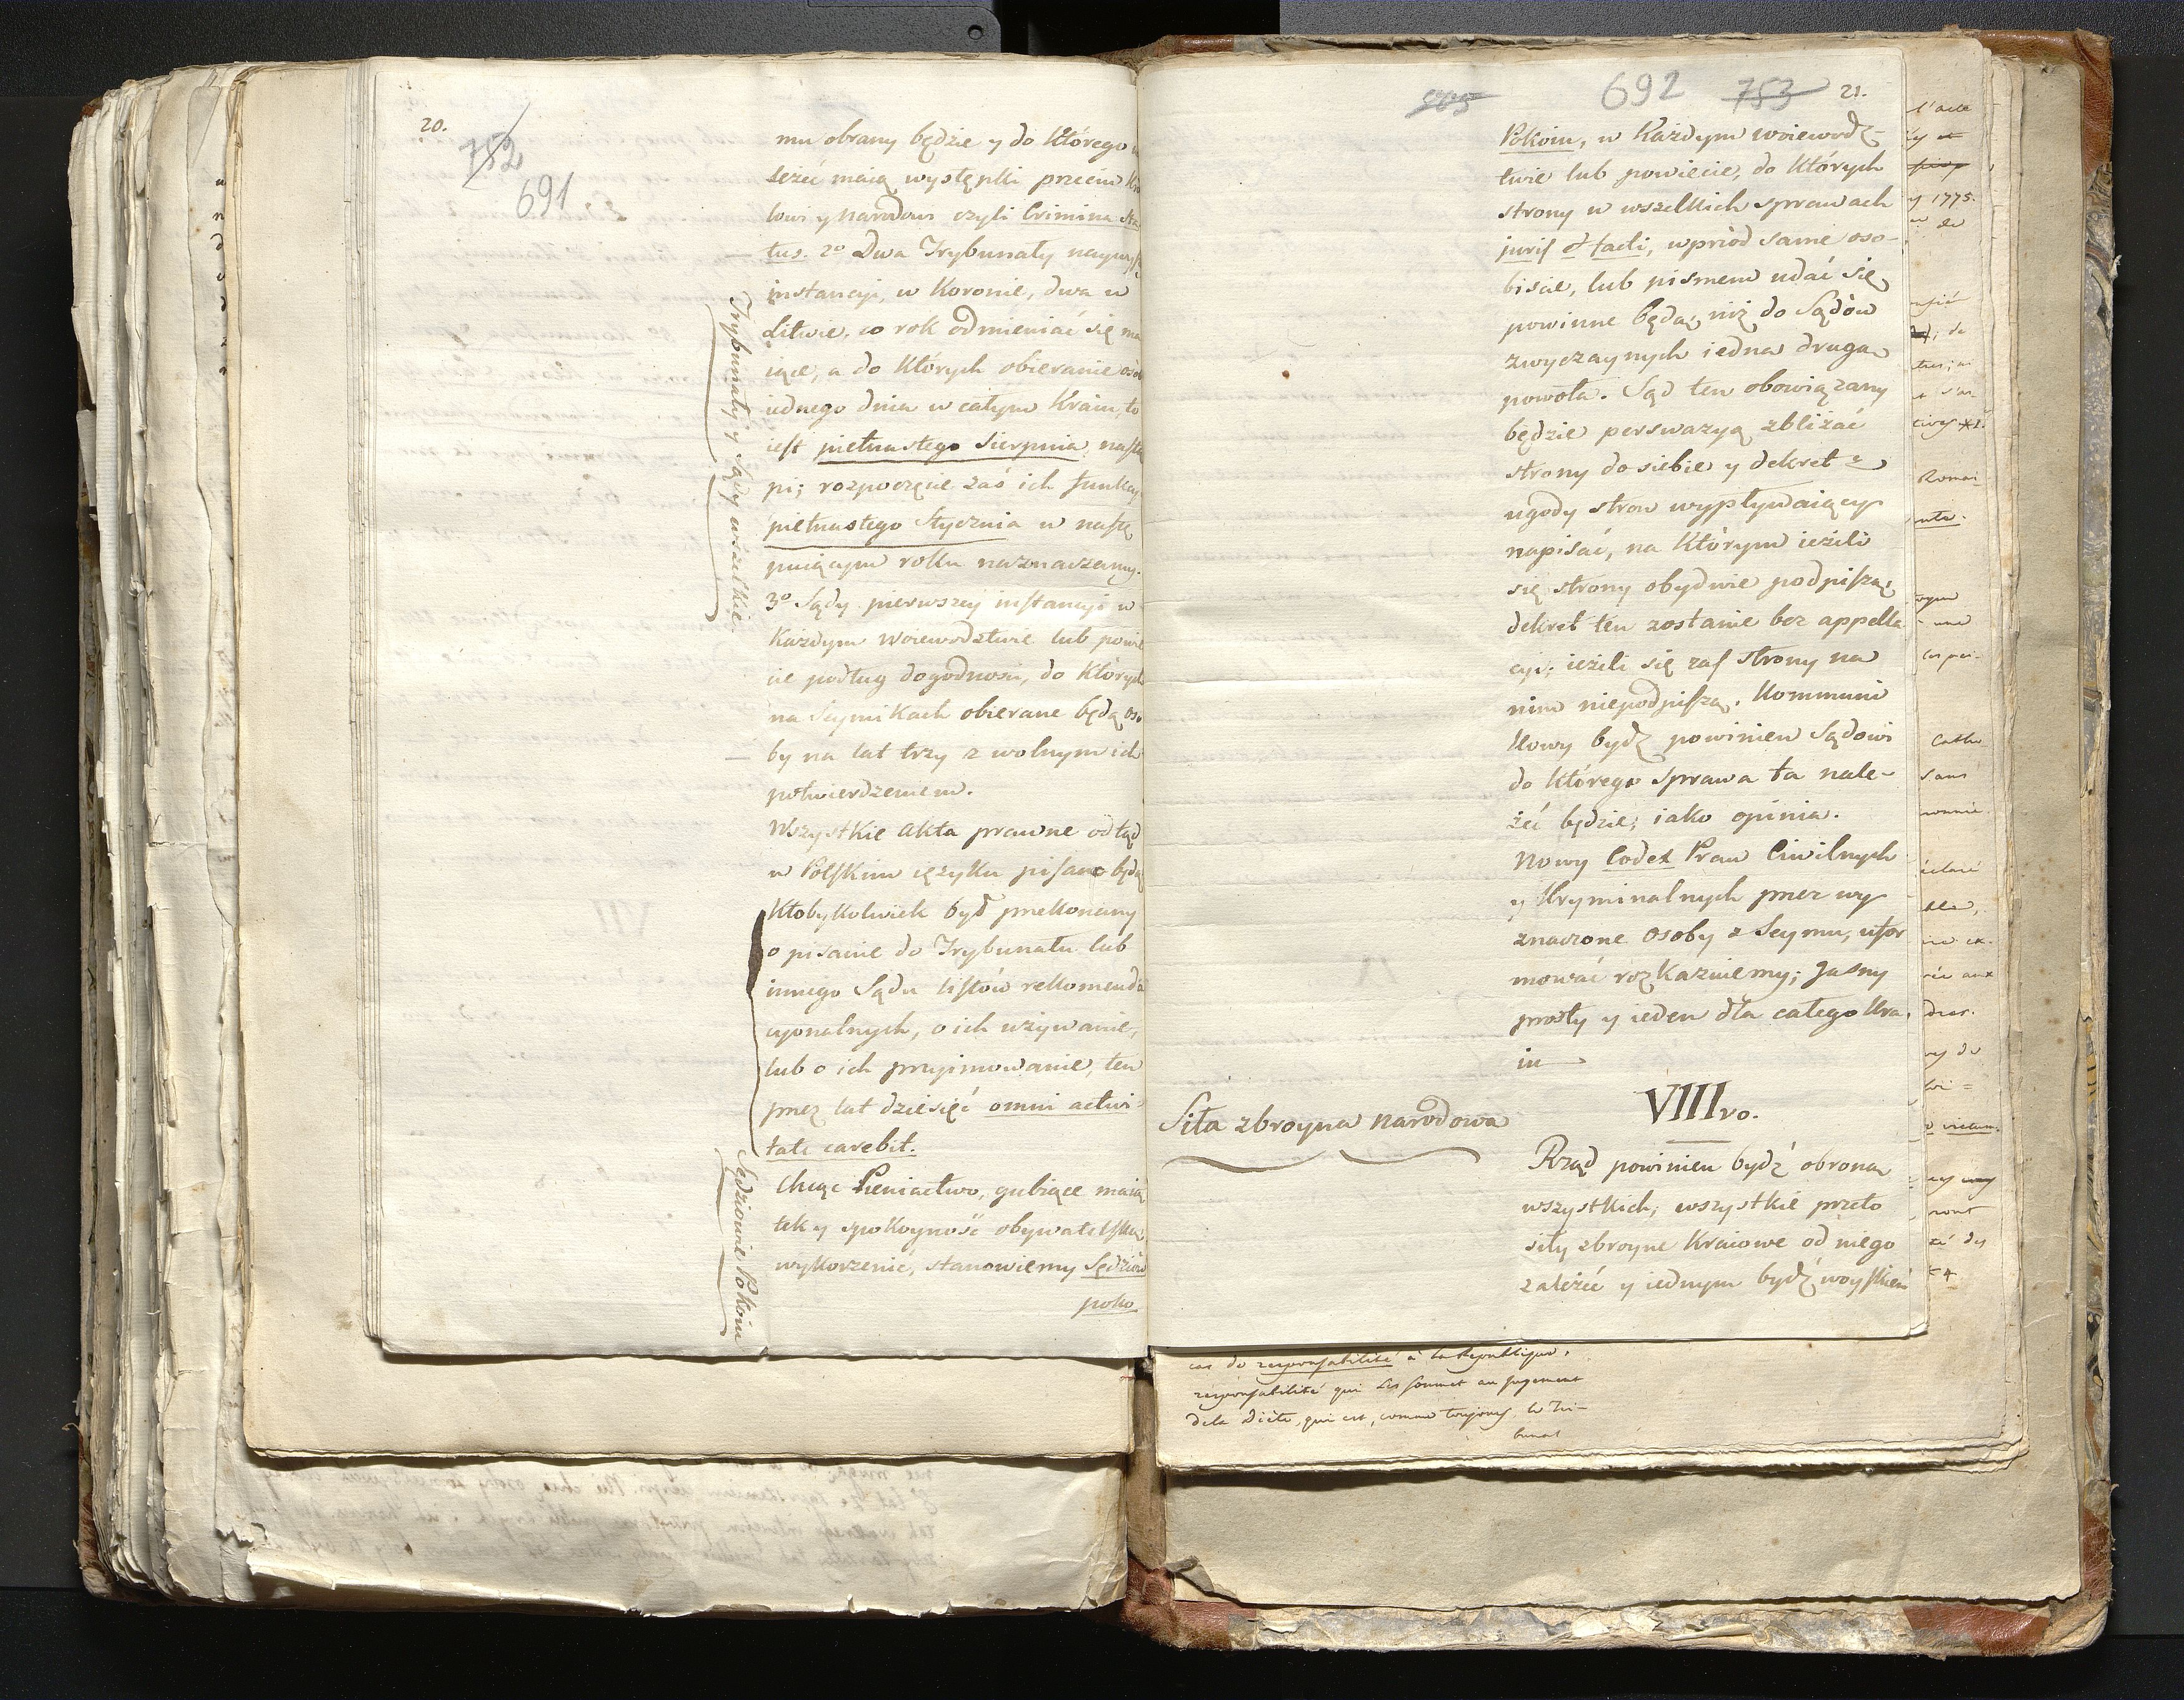 20.
752
691
mu obrany będzie y do Którego
leżeć maią występki przeciw
lowi y narodowi czyli Crimina Sta
tus. 2º Dwa Trybunały naywyż
instancyi, w Koronie, dwa w
Litwie, co rok odmieniać się ma
iące, a do Których obieranie osób
iednego dnia w całym Kraiu, to
iest pietnastego Sierpnia, nastą
pi; rozpoczęcie zaś ich funkcyi
pietnastego Stycznia w nastę
puiącym roku naznaczamy.
3º Sądy pierwszey instancyi w
Każdym Woiewodztwie lub powie
cie podług dogodności, do Których
na Seymikach obierane będą oso
by na lat trzy z wolnym ich
potwierdzeniem.
Wszystkie Akta prawne odtąd
w Polskim ięzyku pisane będą
Ktobykolwiek był przekonany
o pisanie do Trybunału lub
innego Sądu listów rekomenda
cyonalnych, o ich używanie,
lub o ich przyimowanie, ten
przez lat dziesięć omni activi-
tate carebit.
Chcąc Pieniactwo, gubiące maią
tek y spokoyność obywatelską
wykorzenić, stanowiemy Sędziów
poko
Trybunały y Sądy wszelkie.
Sędziowie Pokoiu
692 753 21.
Pokoiu, w Każdym woiewodz-
twie lub powiecie, do Których
strony w wszelkich sprawach
juris et facti, wprzód same oso-
biście, lub pismem udać się
powinne będą, niż do Sądów
zwyczaynych iedna drugą
powoła. Sąd ten obowiązany
będzie perswazyą zbliżać
strony do siebie y dekret z
ugody stron wypływaiący
napisać, na Którym ieżeli
się strony obydwie podpiszą,
dekret ten zostanie bez appella
cyi; ieżeli się zaś strony na
nim niepodpiszą, Kommuni
kowy bydź powinien Sądowi
do którego sprawa ta nale-
żeć będzie, iako opinia.
Nowy Codex Praw Ciwilnych
y Kryminalnych przez wy
znaczone Osoby z Seymu, ufor
mować rozkażuiemy; Jasny
prosty y ieden dla całego Kra
iu
VIIIvo.
Siła zbroyna narodowa
Rząd powinien bydź obroną
wszystkich; wszystkie przeto
siły zbroyne Kraiowe od niego
zależeć y iednym bydź woyskiem
cas de responsabilité à la République,
responsabilité qui les soumet au jugement
de la Diète, qui est, comme toujours, le Tri-
bunal